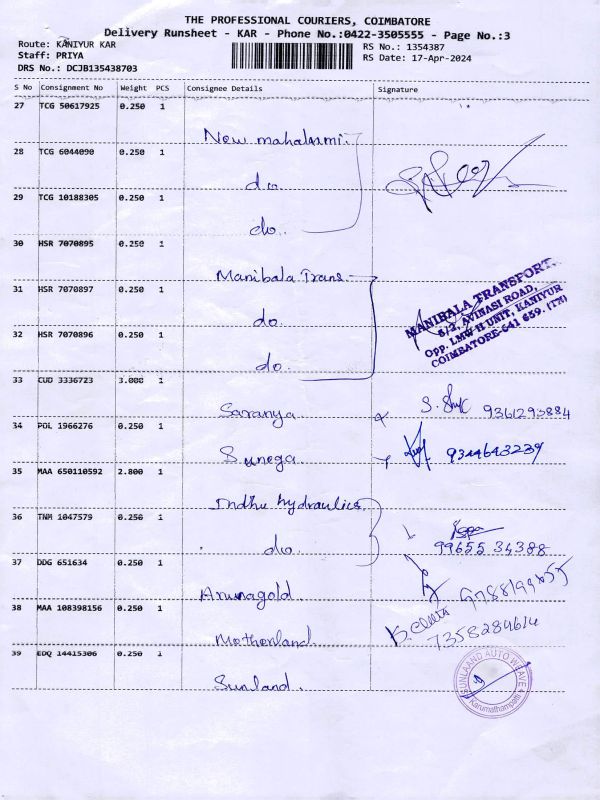 THE PROFESSIONAL COURIERS, COIMBATORE
Delivery Runsheet - KAR - Phone No.:0422-3505555 - Page No.:3
Route: KANIYUR KAR
RS No.: 1354387
Staff: PRIYA
RS Date: 17-Apr-2024
DRS No.: DCJB135438703
S No Consignment No Weight PCS Consignee Details Signature
27 TCG 50617925 0.250 1
New mahalaxmi
28 TCG 6044090 0.250 1
do.
29 TCG 10188305 0.250 1
do.
30 HSR 7070895 0.250 1
Manibala Trans
31 HSR 7070897 0.250 1
do.
32 HSR 7070896 0.250 1
do.
MANIBALA TRANSPORT.
5/2, AVINASI ROAD,
Opp. LMW II UNIT, KANIYUR
COIMBATORE-641 659. (TN)
33 CUD 3336723 3.000 1
Saranya 9361293884
34 POL 1966276 0.250 1
Sunega 9344643239
35 MAA 650110592 2.800 1
Indhu hydraulics
36 TNM 1047579 0.250 1
do. 99655 34388
37 DDG 651634 0.250 1
Arunagold
38 MAA 108398156 0.250 1
Motherland 7358284614
39 EDQ 14415306 0.250 1
Sunland.
SUNLAAND AUTO WEAVE
Karumathampatti